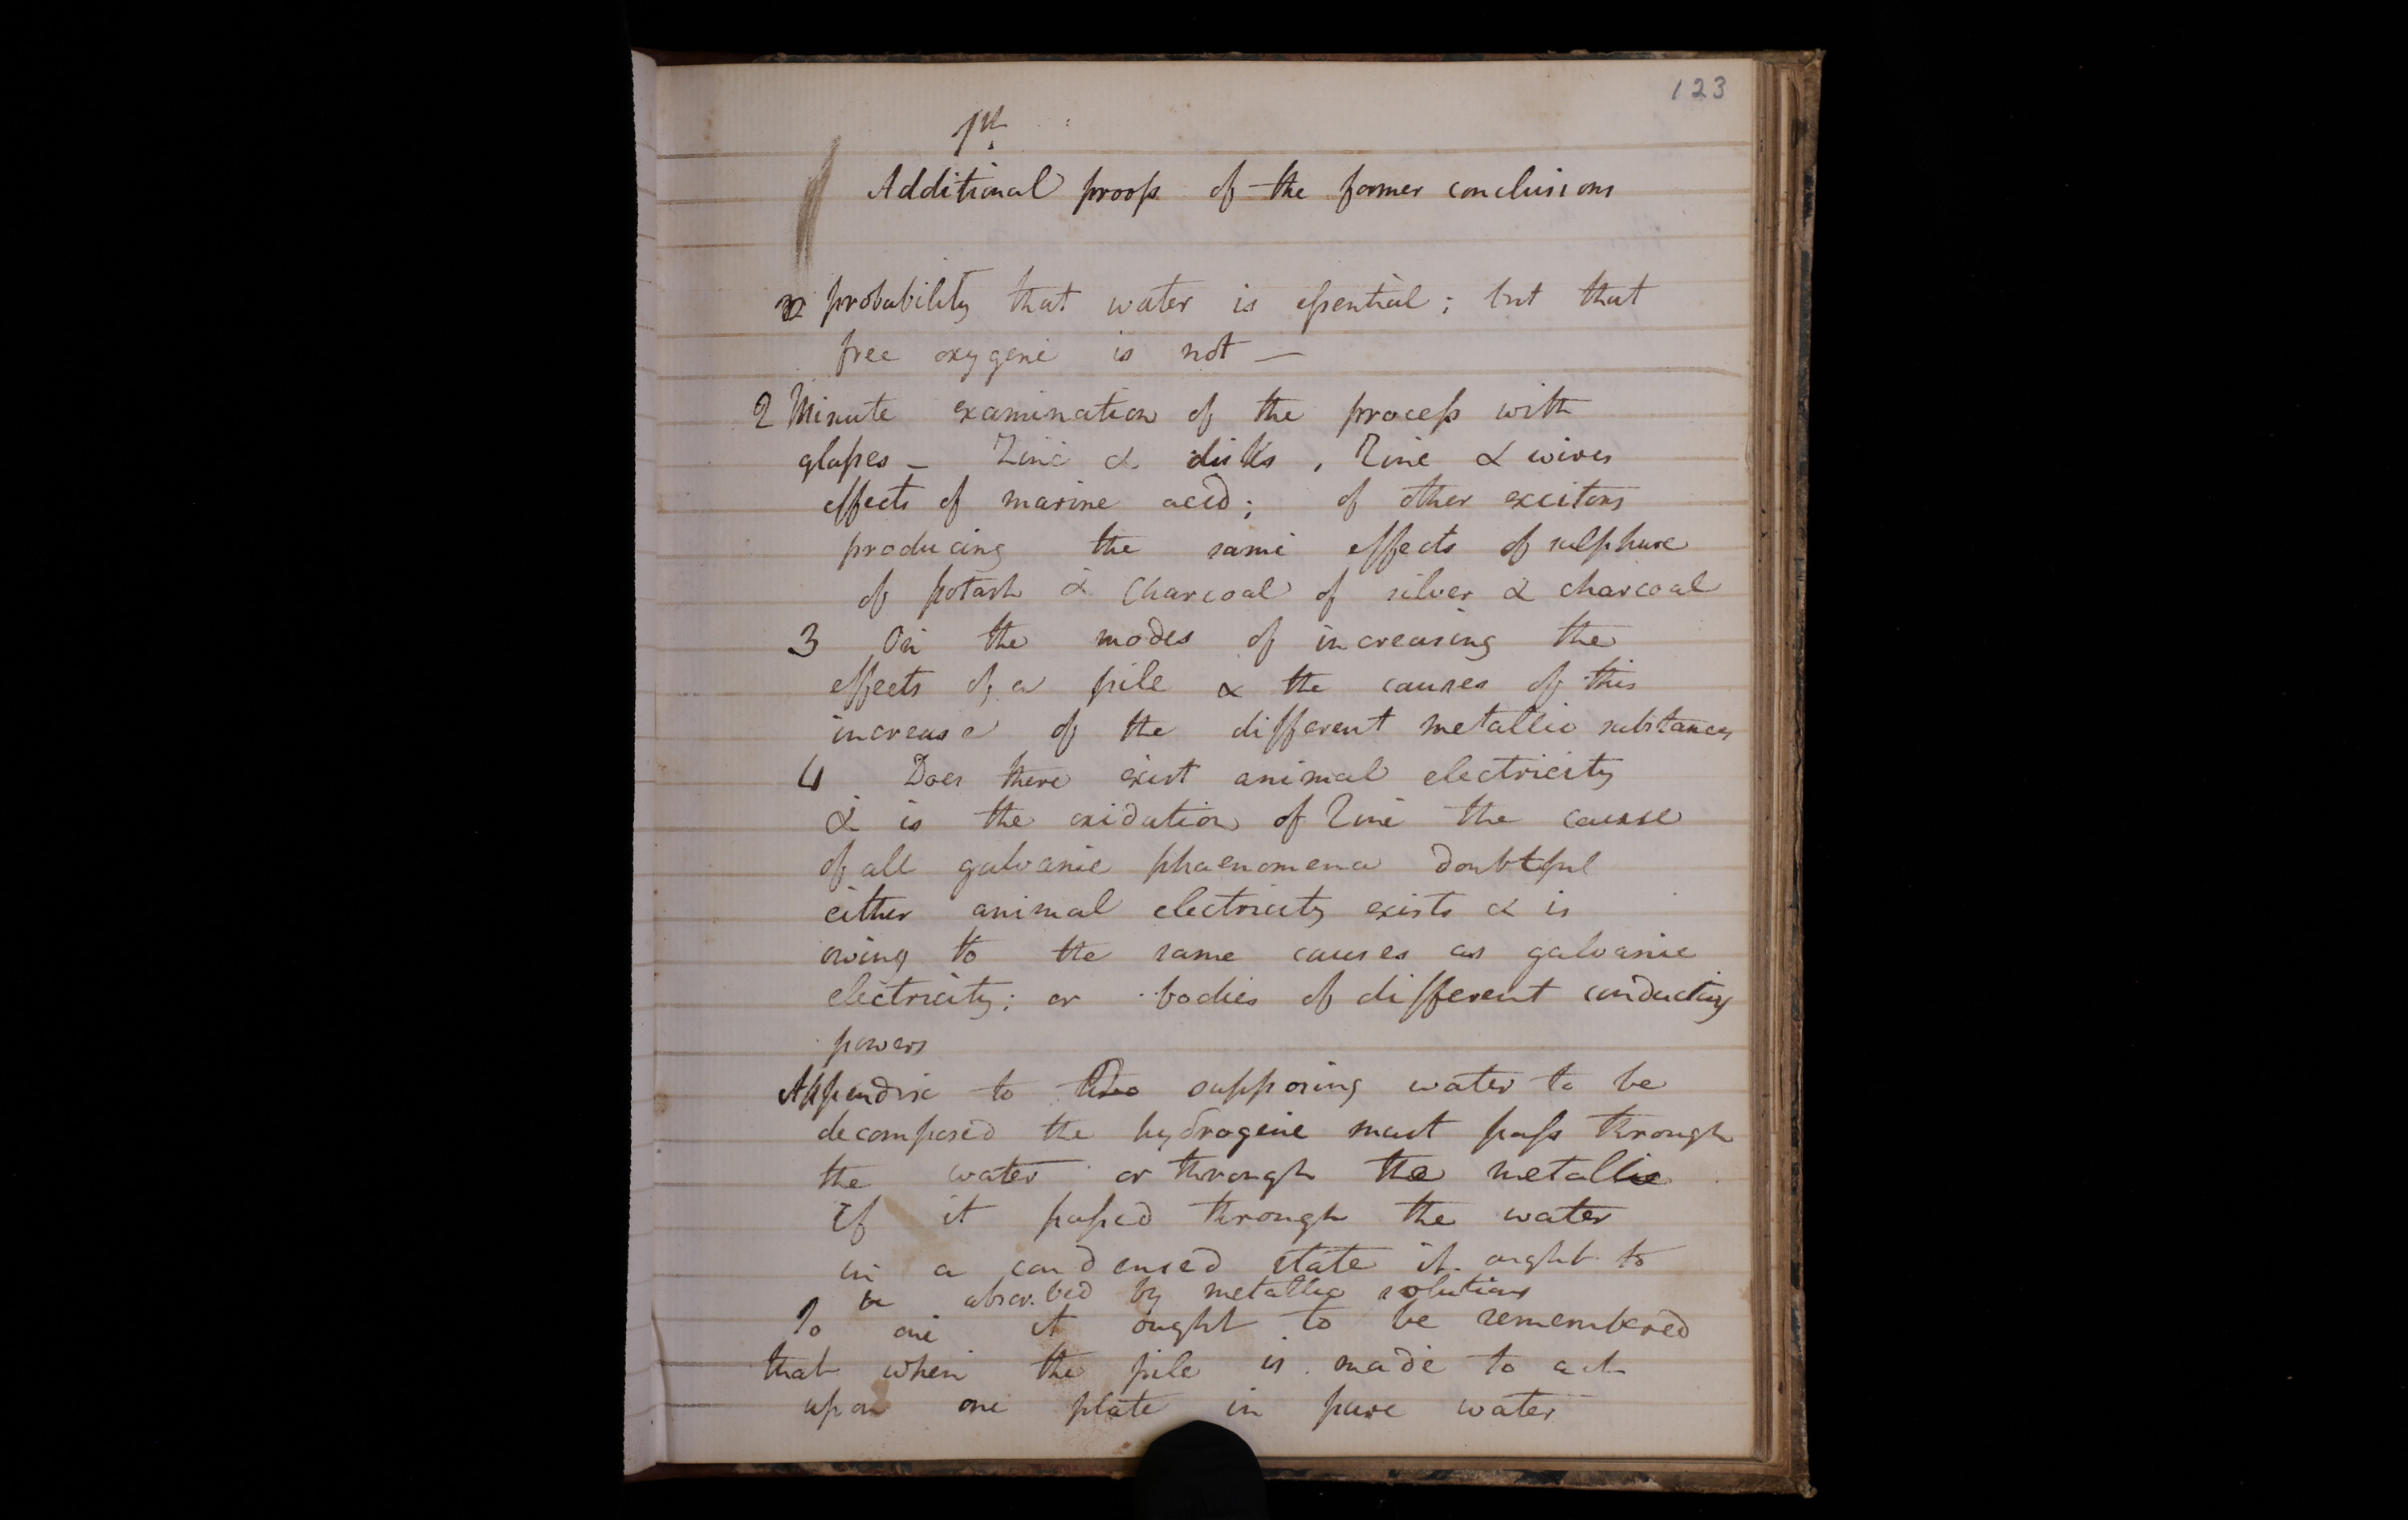 123
1st
Additional proofs of the former conclusions
probability that water is essential; but that
free oxygene is not —
2 Minute examination of the process with
glasses – Zinc & disks, Zinc & wires
effects of marine acid; of other excitors
producing the same effects of sulphure
of potash & charcoal of silver & charcoal
3 On the modes of increasing the
effects of a pile & the causes of this
increase of the different metallic substances
4 Does there exist animal electricity
& is the oxidation of Zinc the cause
of all galvanic phaenomena doubtful
either animal electricity exists & is
owing to the same causes as galvanic
electricity; or bodies of different conducting
powers
Appendix to supposing water to be
decomposed the hydrogene must pass through
the water or through the metallic
If it passed through the water
in a condensed state it ought to
be absorbed by metallic solutions
To one it ought to be remembered
that when the pile is made to act
upon one plate in pure water